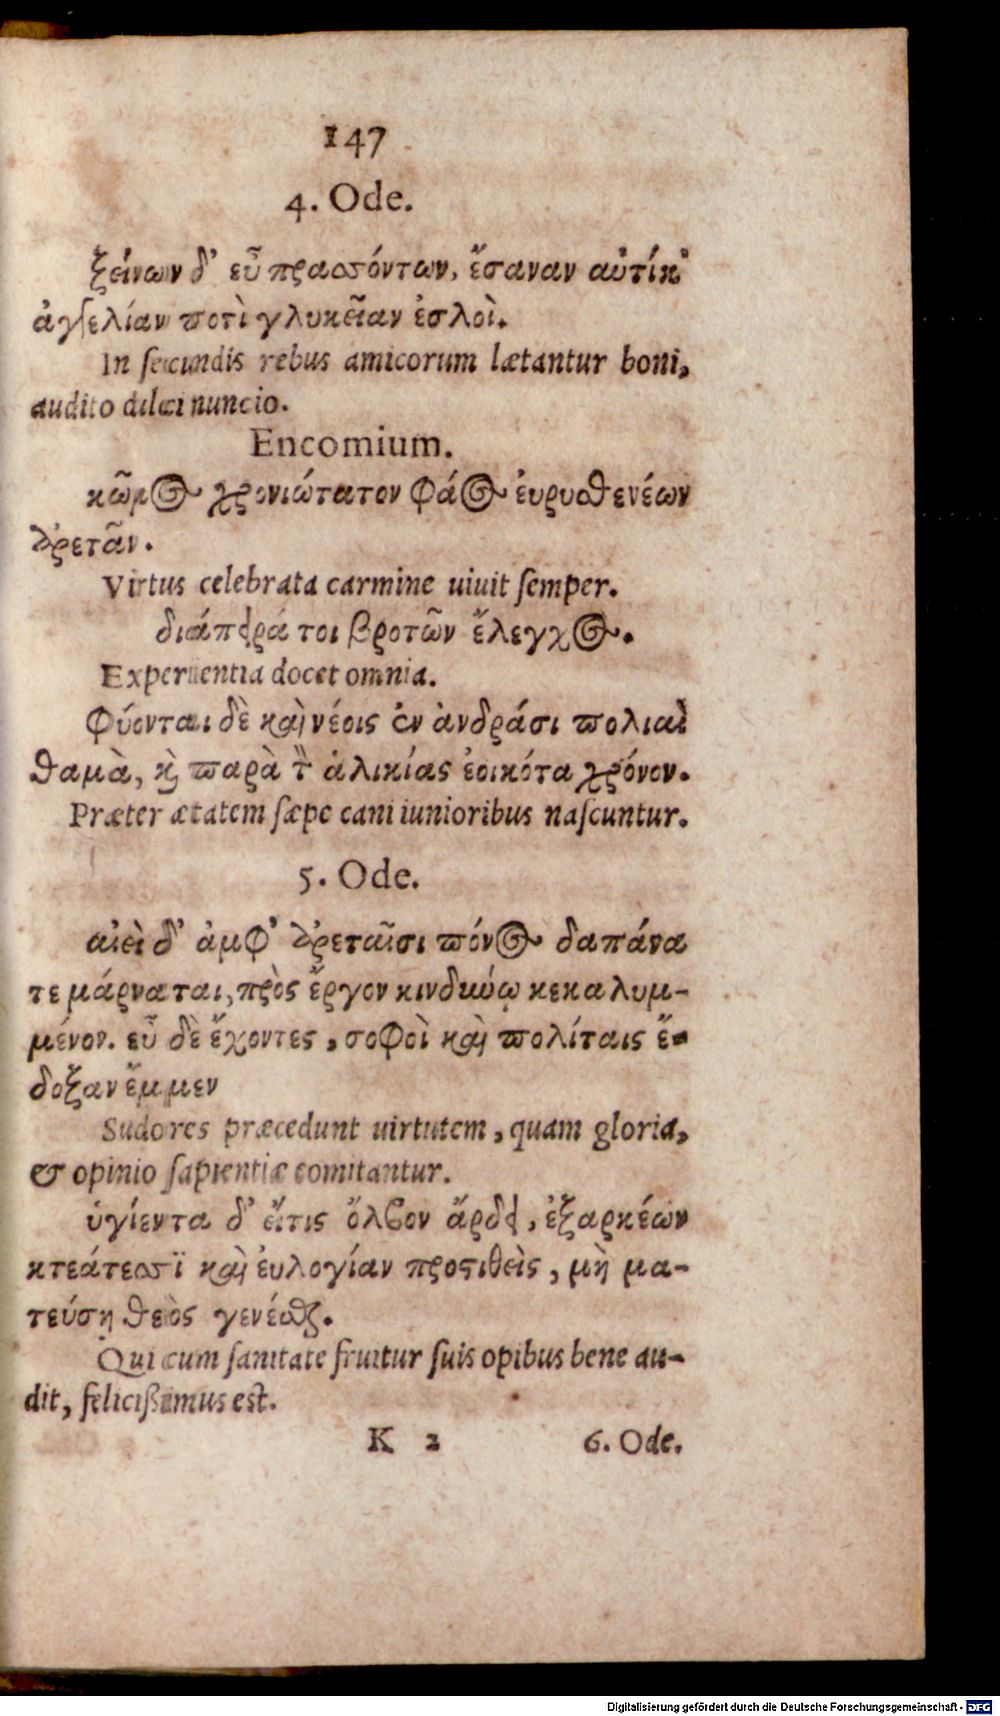 147
4. Ode.
ξείνων δ' εὖ πρασσόντων, ἔσαναν αὐτίκ'
ἀγγελίαν ποτὶ γλυκεῖαν ἐσλοὶ.
In secundis rebus amicorum lætantur boni,
audito dulci nuncio.
Encomium.
κῶμος χρονιώτατον φάος ἐυρυσθενέων
ἀρετᾶν.
Virtus celebrata carmine uiuit semper.
διάπειρά τοι βροτῶν ἔλεγχος.
Experientia docet omnia.
Φύονται δὲ καὶ νέοις ἐν ἀνδράσι πολιαὶ
θαμὰ, καὶ παρὰ τὸν ἁλικίας ἐοικότα χρόνον.
Præter ætatem sæpe cani iunioribus nascuntur.
5. Ode.
αἰεὶ δ' ἀμφ' ἀρεταῖσι πόνος δαπάνα
τε μάρναται, πρὸς ἔργον κινδύνῳ κεκαλυμ-
μένον. εὖ δὲ ἔχοντες, σοφοὶ καὶ πολίταις ἔ-
δοξαν ἔμμεν
Sudores præcedunt uirtutem, quam gloria,
& opinio sapientiæ comitantur.
ὑγίεντα δ' εἴτις ὄλβον ἄρδει, ἐξαρκέων
κτεάτεσσϊ καὶ ἐυλογίαν προστιθεὶς, μὴ μα-
τεύση θεὸς γενέσθαι.
Qui cum sanitate fruitur suis opibus bene au-
dit, felicißimus est.
K 2 6. Ode.
Digitalisierung gefördert durch die Deutsche Forschungsgemeinschaft - DFG